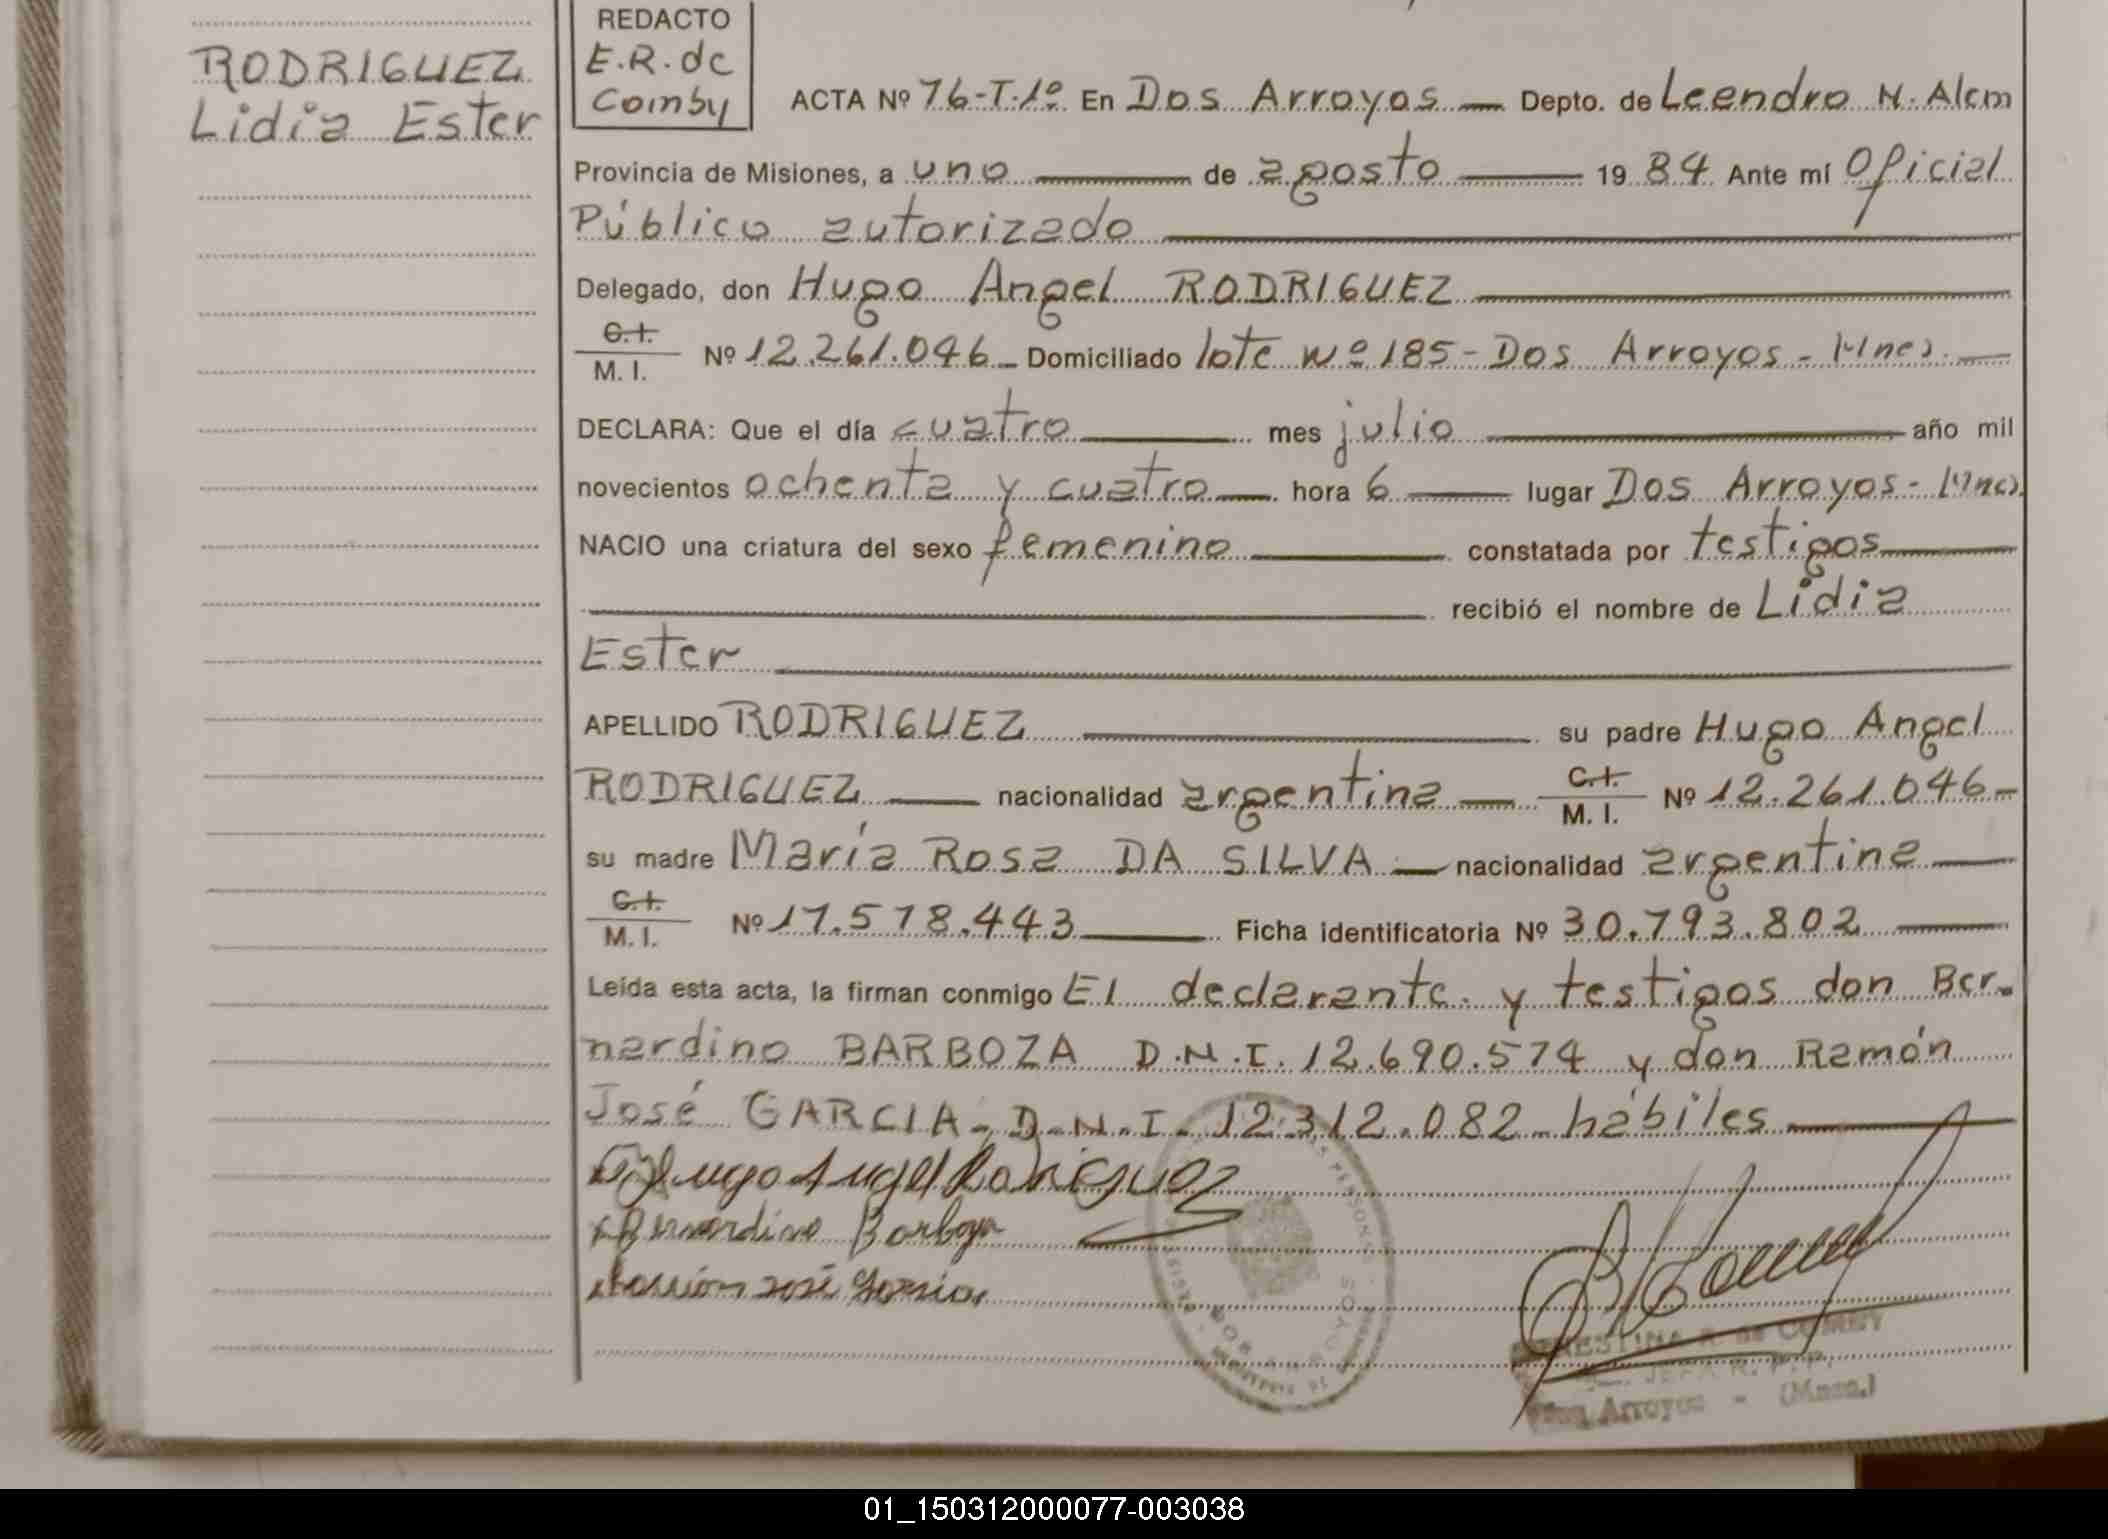 RODRIGUEZ
Lidia Ester
REDACTO
E.R. de
Comby
ACTA Nº 76-T.1º. En Dos Arroyos — Depto. de Leandro N. Alem
Provincia de Misiones, a uno — de agosto — 1984. Ante mí Oficial
Público autorizado
Delegado, don Hugo Angel RODRIGUEZ
C.I.
M. I. Nº 12.261.046 - Domiciliado lote Nº 185 - Dos Arroyos - Mnes.
DECLARA: Que el día cuatro — mes julio — año mil
novecientos ochenta y cuatro — hora 6 — lugar Dos Arroyos - Mnes.
NACIO una criatura del sexo femenino — constatada por testigos
recibió el nombre de Lidia
Ester
APELLIDO RODRIGUEZ — su padre Hugo Angel
RODRIGUEZ — nacionalidad argentina — C.I.
M. I. Nº 12.261.046 -
su madre María Rosa DA SILVA — nacionalidad argentina
C.I.
M. I. Nº 17.578.443 — Ficha identificatoria Nº 30.793.802
Leída esta acta, la firman conmigo El declarante y testigos don Ber-
nardino BARBOZA D.N.I. 12.690.574 y don Ramón
José GARCIA - D.N.I. 12.312.082 hábiles
Hugo Angel Rodriguez
Bernardino Barboza
Ramón José Garcia
ERNESTINA R. de COMBY
JEFA R. P. P.
Dos Arroyos - (Mnes.)
01_150312000077-003038